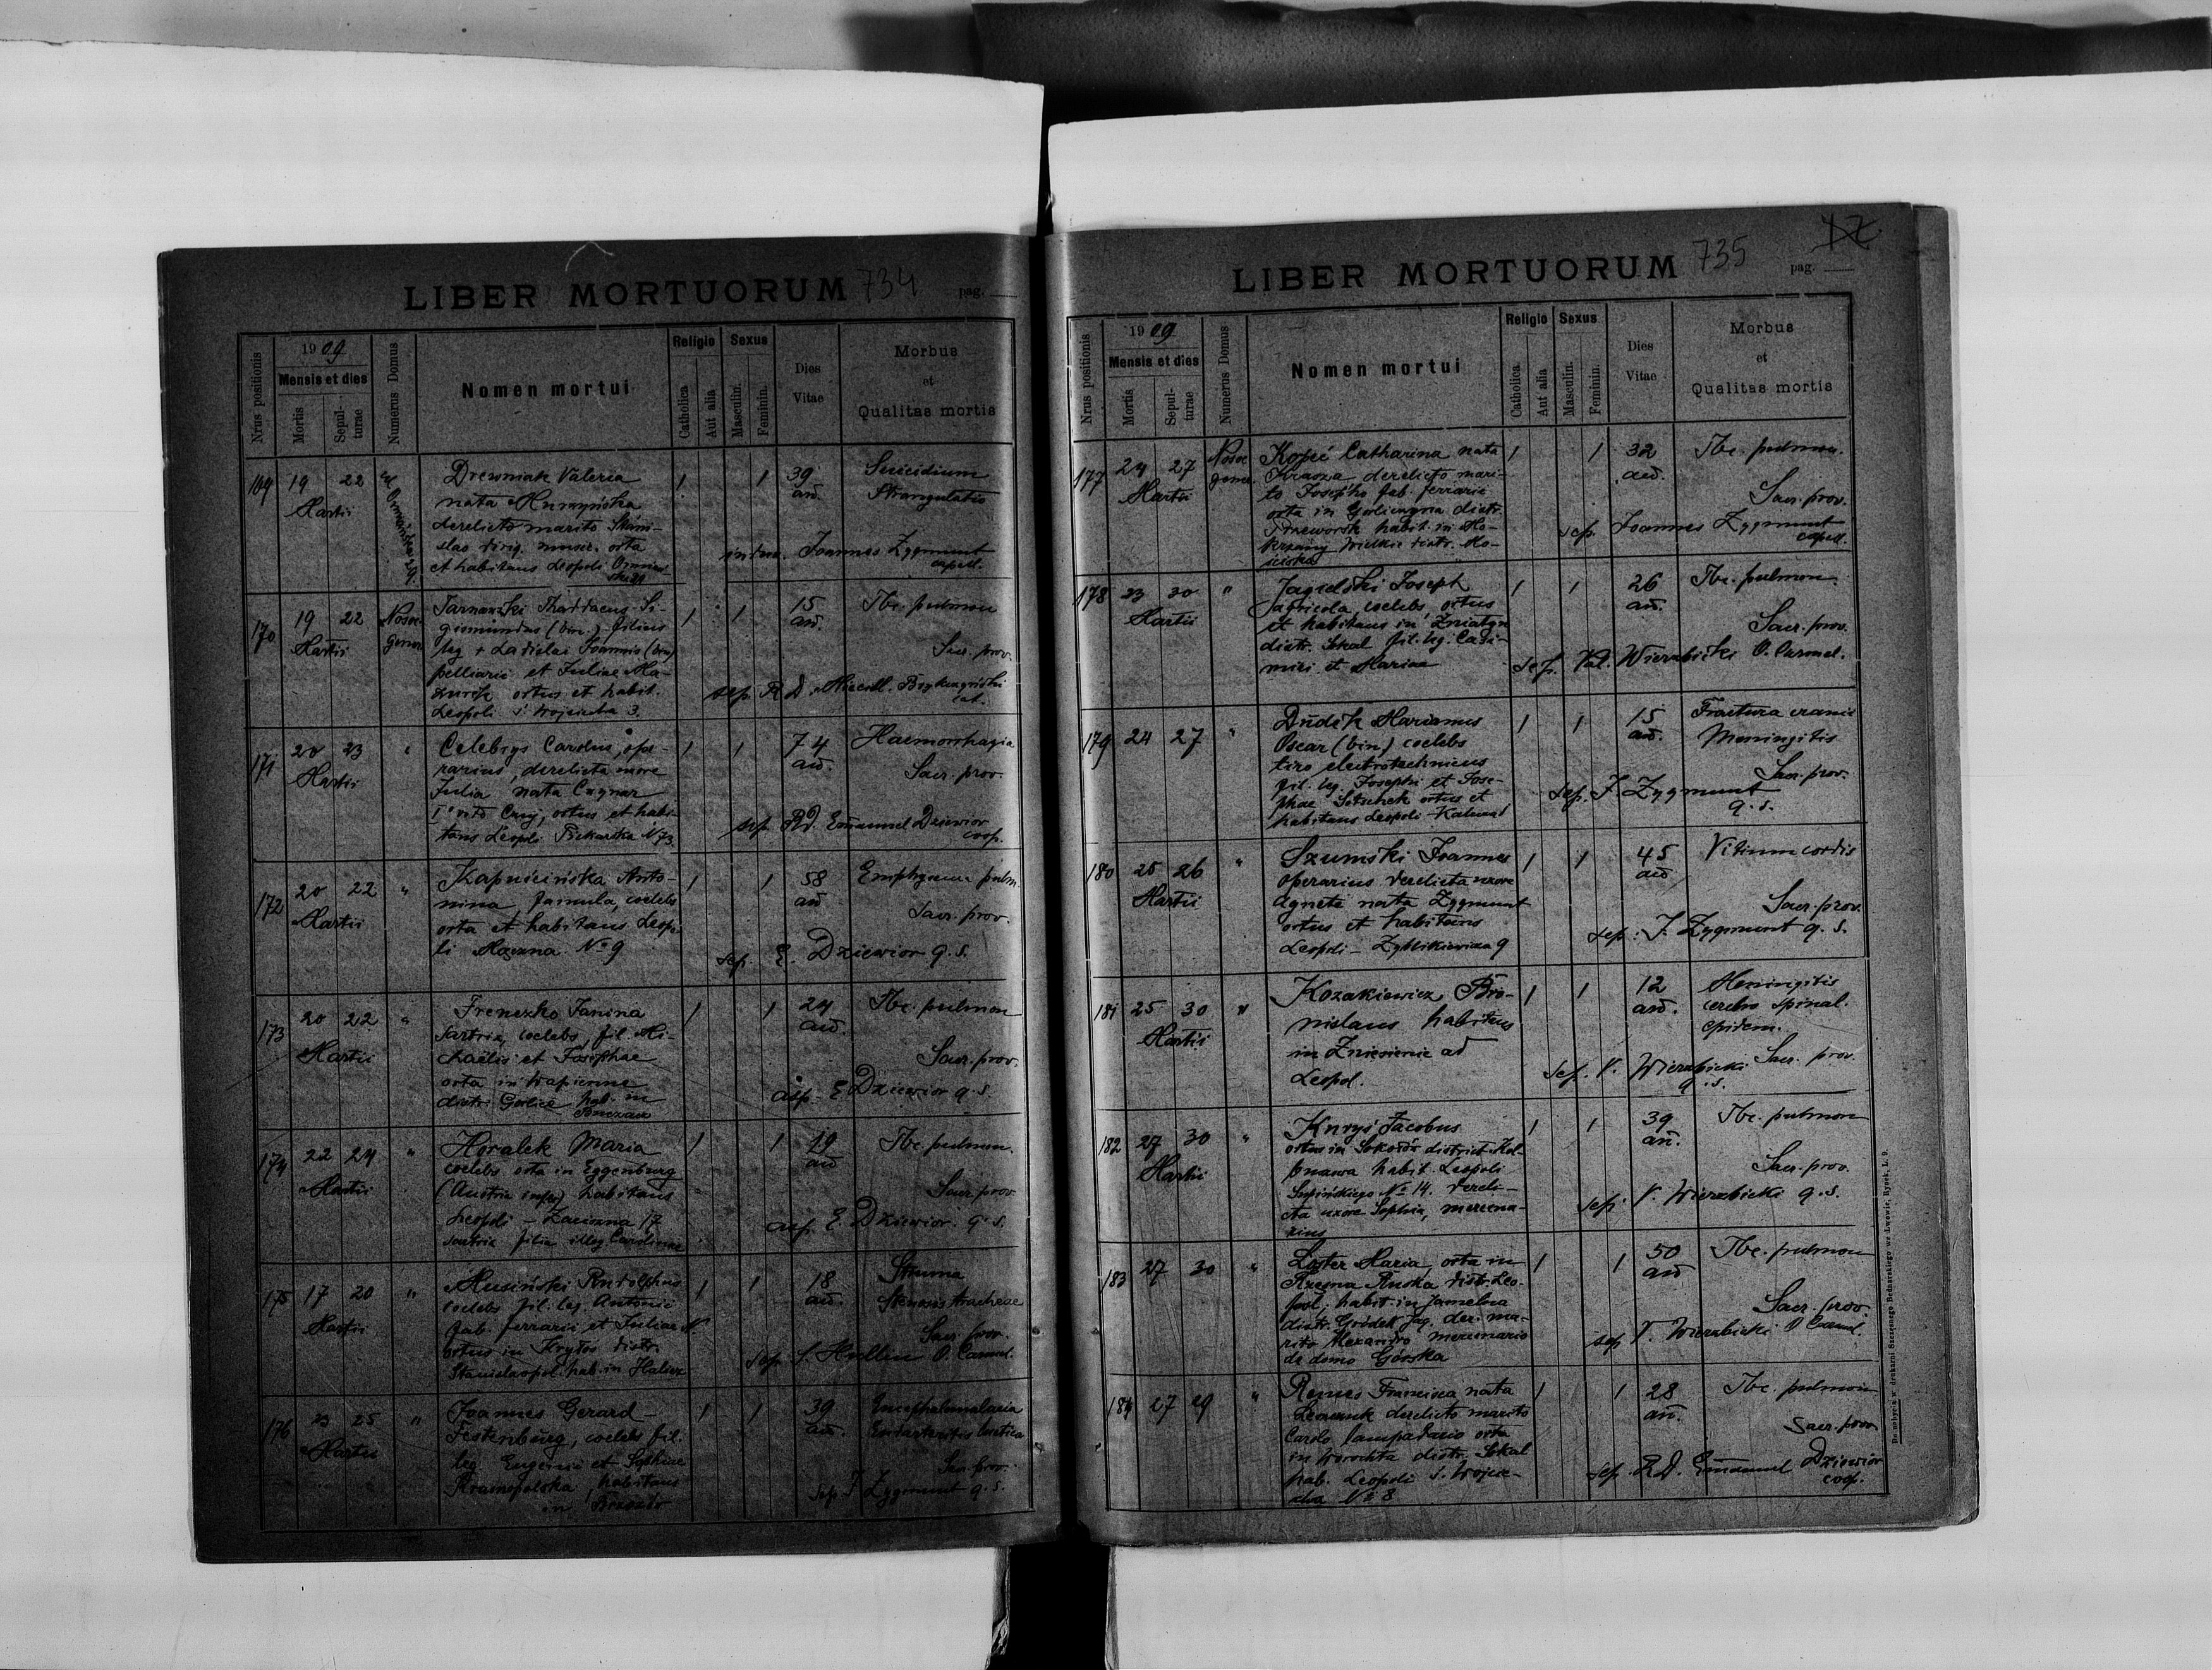 LIBER MORTUORUM 734 pag.
Nrus positionis
1909
Mensis et dies
Mortis
Sepulturae
Numerus Domus
Nomen mortui
Religio
Catholica
Aut alia
Sexus
Masculin.
Feminin.
Dies
Vitae
Morbus
et
Qualitas mortis
169 19 22 Martii
Drewniak Valeria
nata
derelicto marito Stani-
slao dirig. music. orta
et habitans Leopoli
1 1 39 an.
Suicidium
Strangulatio
Joannes Zygmunt
capell.
170 19 22 Martii
Nosoc. gener.
Tarnawski Thaddaeus Si-
gismundus (bin.) filius
leg + Ladislai Joannis (bin)
pelliarii et Juliae Ma-
ortus et habit.
Leopoli S. Wojciecha 3.
1 1 15 an.
Tbc. pulmon
Sacr. prov.
sep R D
171 20 23 Martii "
Celebrys Carolus, ope-
rarius, derelicta uxore
Julia nata
ortus et habi-
tans Leopoli Piekarska N 73.
1 1 74 an.
Haemorrhagia
Sacr. prov.
sep. Rd. Emanuel Dziewior
coop.
172 20 22 " Martii
Kapuścińska Anto-
nina, famula, coelebs
orta et habitans Leopo-
li No 9
1 1 58 an
Emphysema pulm.
Sacr. prov.
sep E. Dziewior q. s.
173 20 22 " Martii
Frenczko Janina
sartrix, coelebs, fil. Mi-
chaelis et Josephae
orta in Wapienne
distr. Gorlice hab. in
1 1 24 an.
Tbc. pulmon
Sacr. prov.
E Dziewior q. s.
174 22 24 " Martii
Horalek Maria
coelebs orta in Eggenburg
(Austria infer) habitans
Leopoli - 17
sartrix filia illeg. Carolinae
1 1 19 an
Tbc. pulmon.
Sacr. prov.
E. Dziewior. q. s.
175 17 20 " Martii
Musiński Rudolphus
coelebs fil. leg. Antonii
fab. ferrarii et Juliae N
ortus in Krylos distr.
Stanislaopol. hab. in Halicz
1 1 18 an.
Struma
Stenosis tracheae
Sacr. prov.
sep. O. Carmel.
176 23 25 " Martii
Joannes Gerard -
Festenburg, coelebs fil.
leg Eugenii et Sophiae
habitans
in
1 1 39 an.
Encephalomalacia
Endarteritis luetica
Sacr. prov.
sep J Zygmunt q. s.
LIBER MORTUORUM 735 pag.
Nrus positionis
1909
Mensis et dies
Mortis
Sepulturae
Numerus Domus
Nomen mortui
Religio
Catholica.
Aut alia
Sexus
Masculin.
Feminin.
Dies
Vitae
Morbus
et
Qualitas mortis
177 24 27 Martii
Nosoc gener.
Kopeć Catharina nata
derelicto mari-
to Josepho fab. ferrario
orta in distr.
Przeworsk habit. in Mo-
krzany Wielkie distr. Mo-
ściska
1 1 32 an.
Tbc. pulmon.
Sacr. prov.
sep. Joannes Zygmunt
capell.
178 23 30 " Martii
Jagielski Joseph
agricola, coelebs, ortus
et habitans in Zniatyn
distr. Sokal fil. leg. Casi-
miri et Mariae
1 1 26 an.
Tbc. pulmon.
Sacr. prov.
sep. Val. Wierzbicki O. Carmel.
179 24 27 "
Dudek Marianus
Oscar (bin) coelebs
tiro electrotechnicus
fil. leg. Josephi et Jose-
phae ortus et
habitans Leopoli -
1 1 15 an.
Fractura cranii
Meningitis
Sacr. prov.
sep. J. Zygmunt
q. s.
180 25 26 " Martii
Szumski Joannes
operarius derelicta uxore
Agnete nata Zygmunt
ortus et habitans
Leopoli - Zyblikiewicza 9
1 1 45 an
Vitium cordis
Sacr. prov.
sep. J. Zygmunt q. s.
181 25 30 " Martii
Kozakiewicz Bro-
nislaus habitans
in Zniesienie ad
Leopol.
1 1 12 an.
Meningitis
cerebro spinal.
epidem.
Sacr. prov.
sep. V. Wierzbicki
q. s.
182 27 30 " Martii
Kuryś Jacobus
ortus in Sokołów district. Kol-
habit. Leopoli
Supińskiego No 14. dereli-
cta uxore Sophia, mercena-
rius
1 1 39 an.
Tbc. pulmon
Sacr. prov.
sep. V. Wierzbicki q. s.
183 27 30 "
Loster Maria, orta in
Rzęsna Ruska distr. Leo-
pol, habit. in Jamelna
distr. Gródek Jag. der. ma-
rito Alexandro mercenario
de domo Górska
1 1 50 an
Tbc. pulmon
Sacr. prov.
sep V. Wierzbicki O Carmel.
184 27 29 "
Francisca nata
derelicto marito
Carolo lampadario orta
in distr. Sokal
hab. Leopoli S. Wojcie-
cha No 8
1 1 28 an.
Tbc. pulmon
Sacr. prov
sep. R D. Emanuel Dziewior
coop.
De nabycia w drukarni Szczęsnego Bednarskiego we Lwowie, Rynek, L. 9.